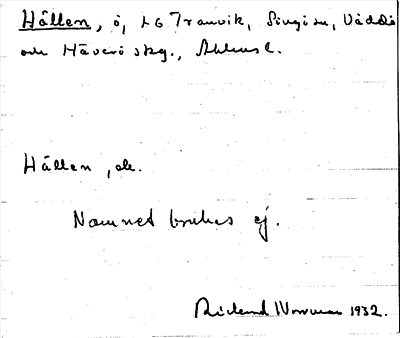 Hållen, ö, LG Tranvik, Singö sn, Väddö
och Häverö skg., Ahlens l.
Hållen, ö.
Namnet brukas ej.
Rickard Norrman 1932.